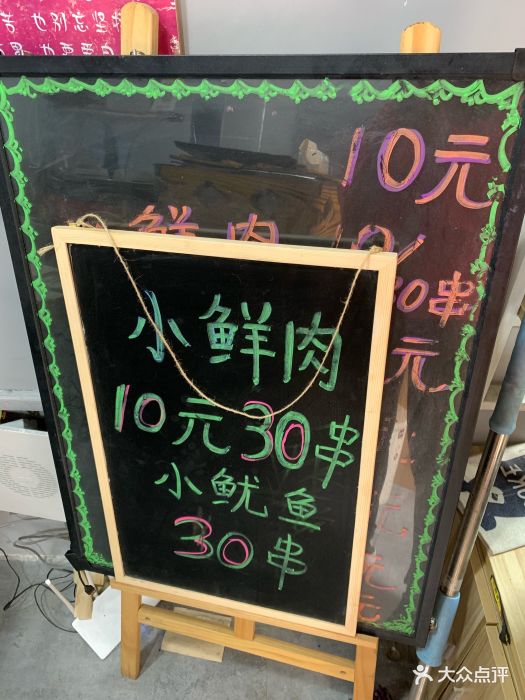 也别忘坚
10元
鲜肉
30串
元
小鲜肉
10元30串
小鱿鱼
30串
元
元
大众点评